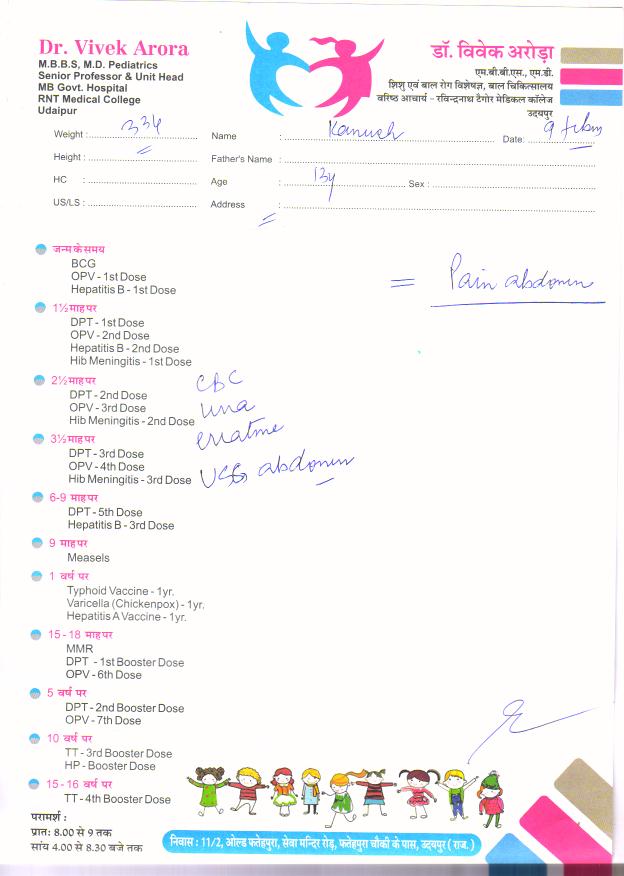 Dr. Vivek Arora
M.B.B.S, M.D. Pediatrics
Senior Professor & Unit Head
MB Govt. Hospital
RNT Medical College
Udaipur
डॉ. विवेक अरोड़ा
एम.बी.बी.एस., एम.डी.
शिशु एवं बाल रोग विशेषज्ञ, बाल चिकित्सालय
वरिष्ठ आचार्य - रविन्द्रनाथ टैगोर मेडिकल कॉलेज
उदयपुर
Weight : Name : Date: 9
Height : Father's Name :
HC : Age : 13y Sex :
US/LS : Address :
= Pain abdomen
जन्म के समय
BCG
OPV - 1st Dose
Hepatitis B - 1st Dose
1½ माह पर
DPT - 1st Dose
OPV - 2nd Dose
Hepatitis B - 2nd Dose
Hib Meningitis - 1st Dose
2½ माह पर CBC
DPT - 2nd Dose
OPV - 3rd Dose
Hib Meningitis - 2nd Dose
3½ माह पर
DPT - 3rd Dose
OPV - 4th Dose
Hib Meningitis - 3rd Dose USG abdomen
6-9 माह पर
DPT - 5th Dose
Hepatitis B - 3rd Dose
9 माह पर
Measels
1 वर्ष पर
Typhoid Vaccine - 1yr.
Varicella (Chickenpox) - 1yr.
Hepatitis A Vaccine - 1yr.
15 - 18 माह पर
MMR
DPT - 1st Booster Dose
OPV - 6th Dose
5 वर्ष पर
DPT - 2nd Booster Dose
OPV - 7th Dose
10 वर्ष पर
TT - 3rd Booster Dose
HP - Booster Dose
15 - 16 वर्ष पर
TT - 4th Booster Dose
परामर्श :
प्रात: 8.00 से 9 तक
सांय 4.00 से 8.30 बजे तक
निवास : 11/2, ओल्ड फतेहपुरा, सेवा मन्दिर रोड़, फतेहपुरा चौकी के पास, उदयपुर ( राज. )